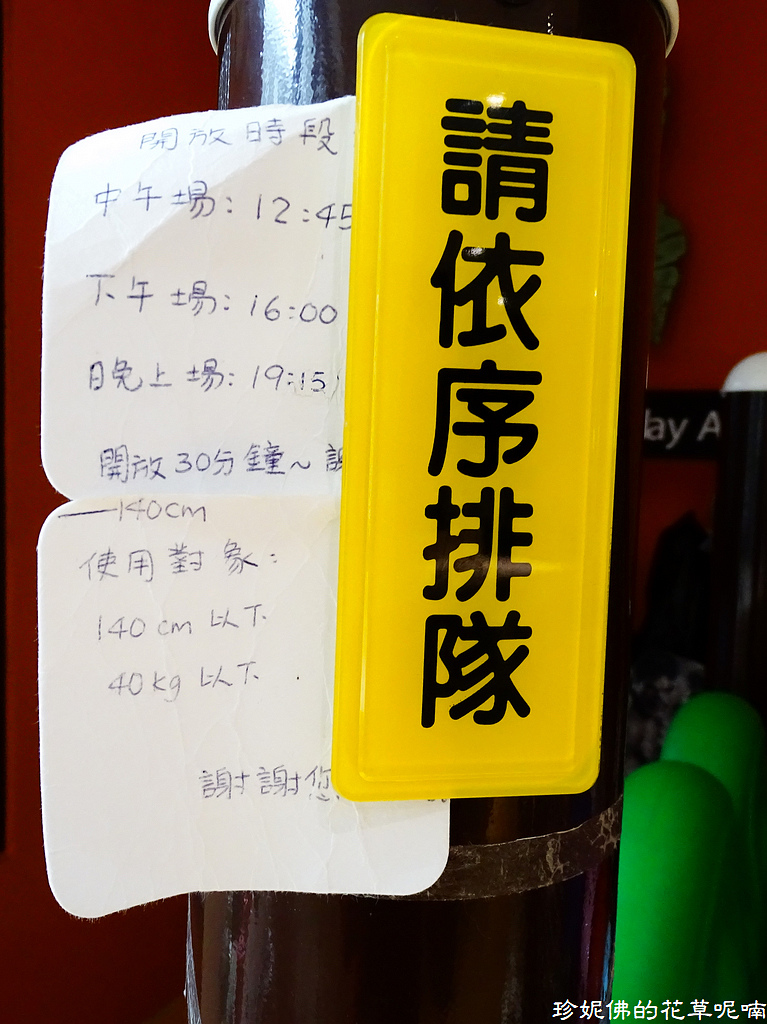 開放時段
中午場：12:45
下午場：16:00
晚上場：19:15
開放30分鐘~
—140cm
使用對象：
140cm 以下
40kg 以下
謝謝您
請依序排隊
ay A
珍妮佛的花草呢喃